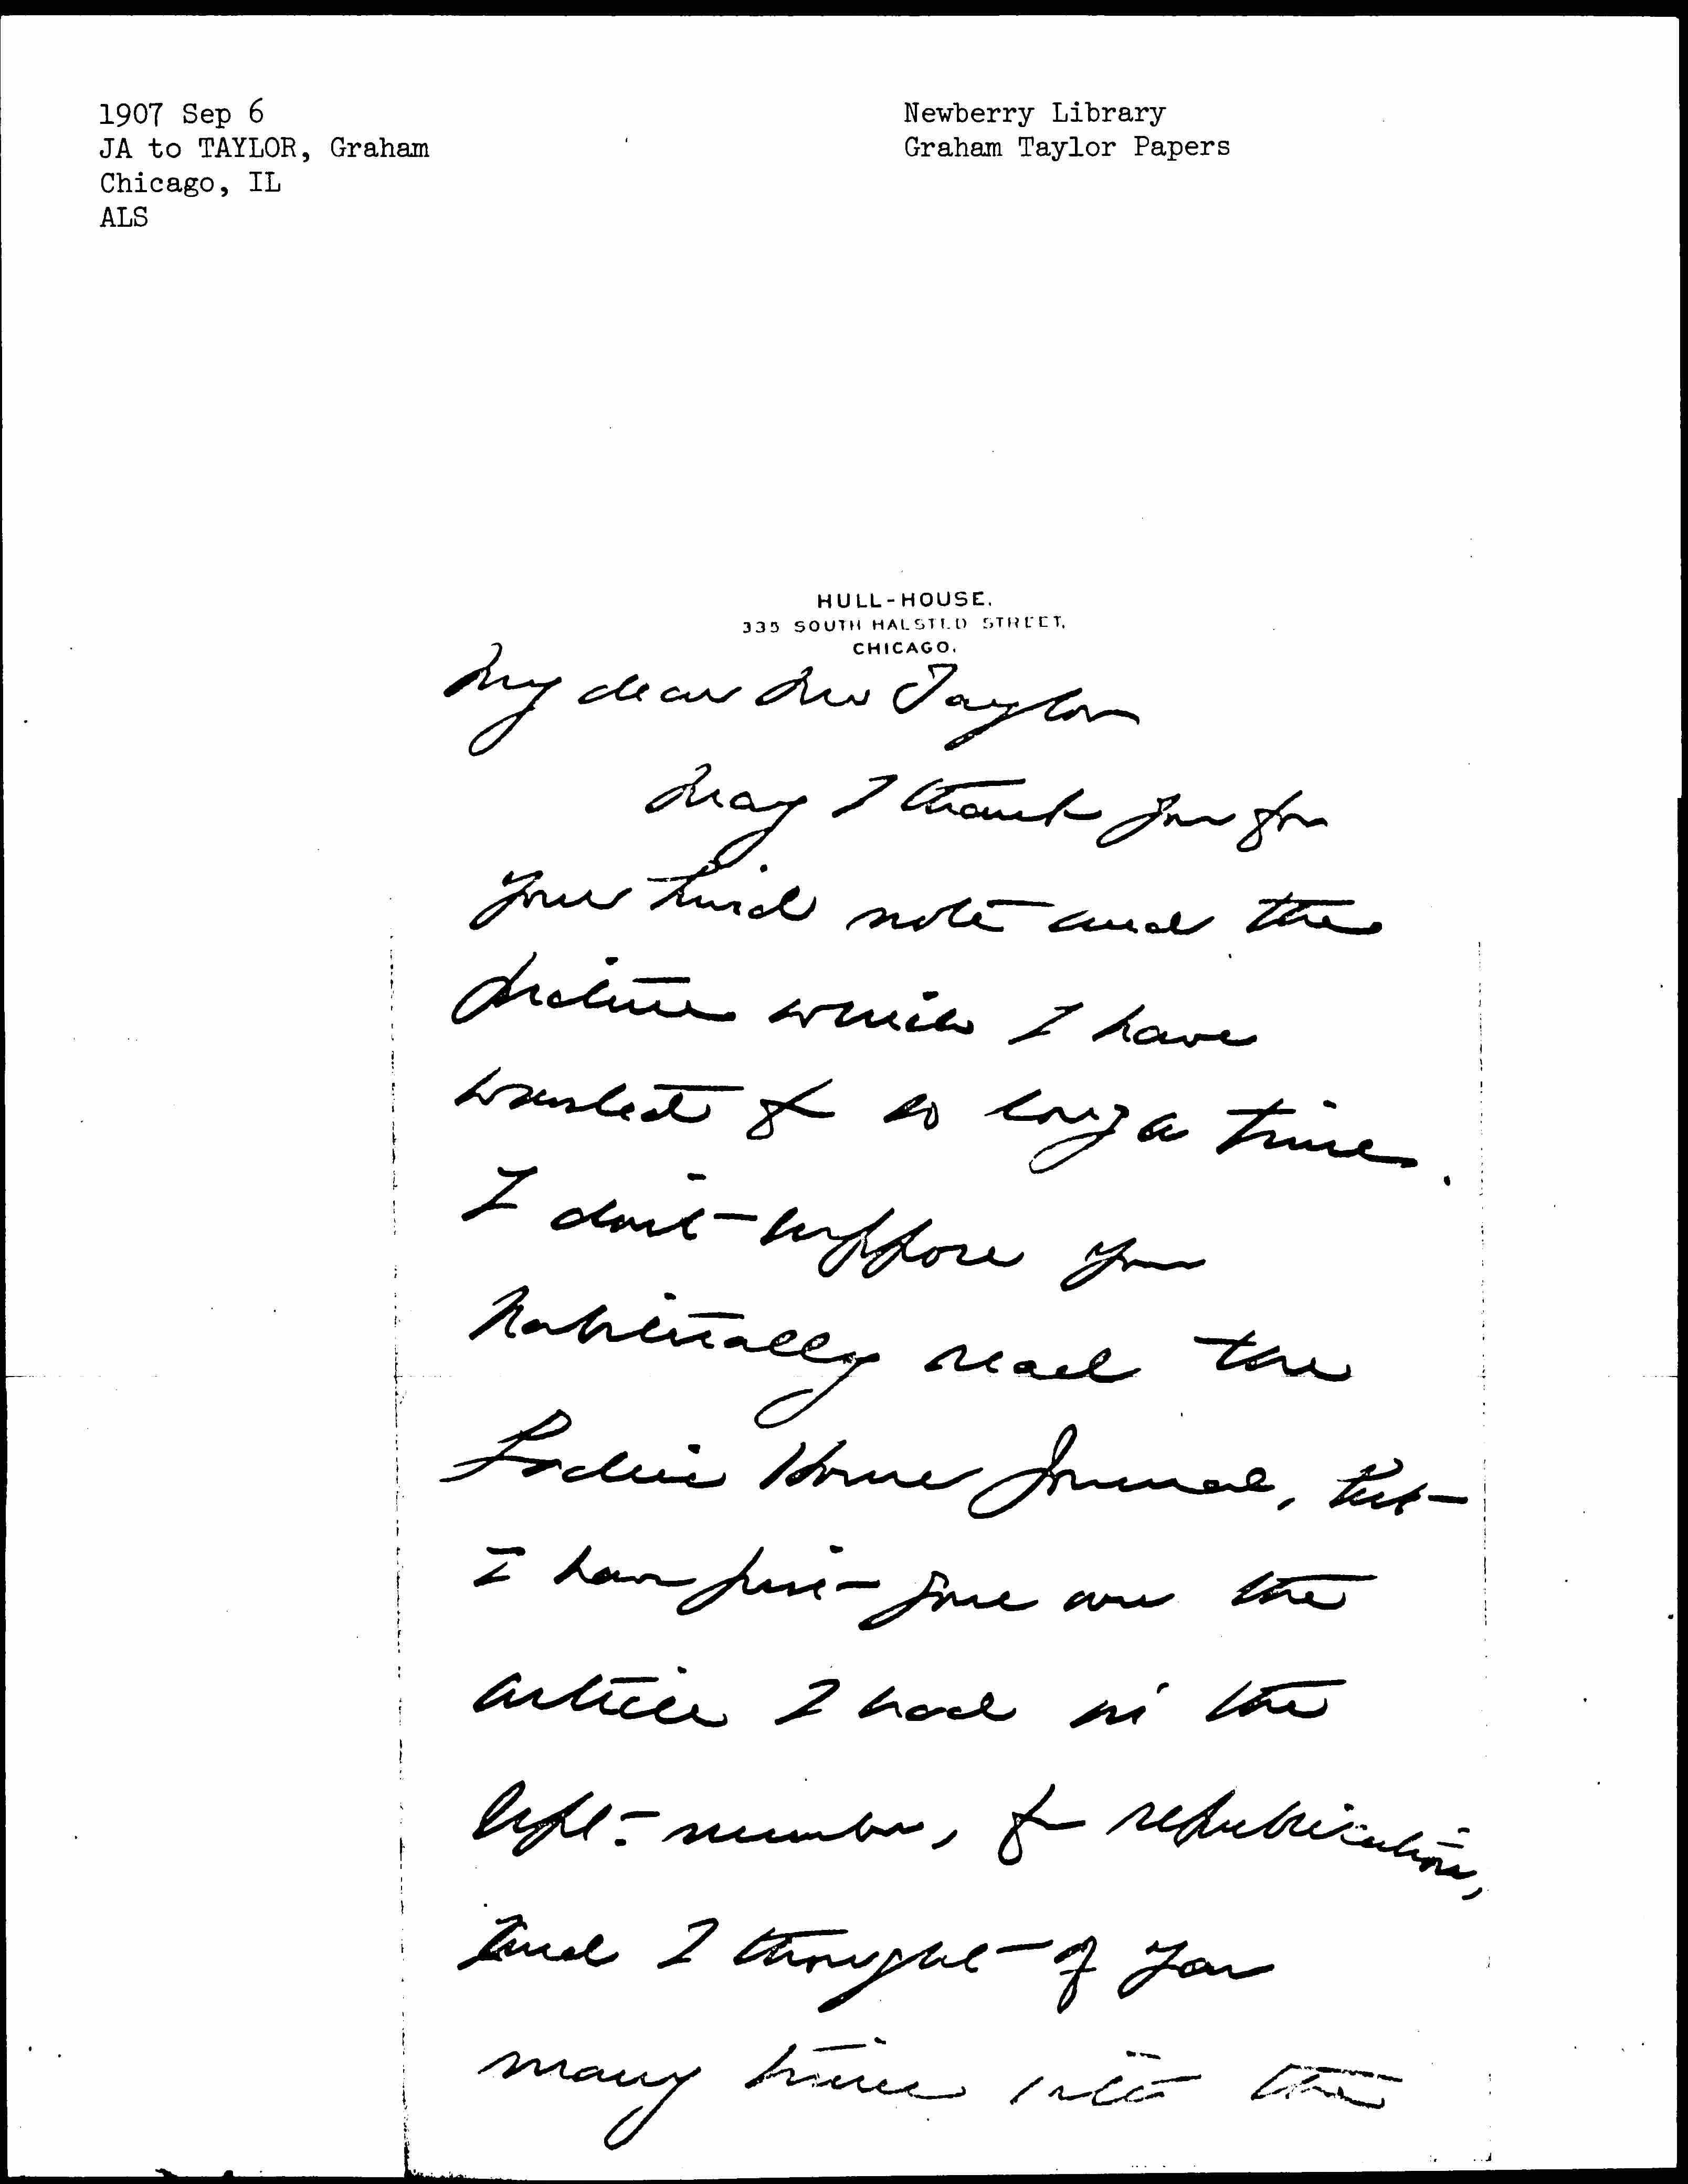 1907 Sep 6
JA to TAYLOR, Graham
Chicago, IL
ALS
Newberry Library
Graham Taylor Papers
HULL-HOUSE.
335 SOUTH HALSTED STREET,
CHICAGO.
My dear Mr Taylor
May I thank you for
your kind note and the
picture which I have
wanted for so long a time.
I don't suppose you
habitually read the
Ladies Home Journal, but
I have just gone over the
article I had in the
Sept. number, for republication,
and I thought of you
many times